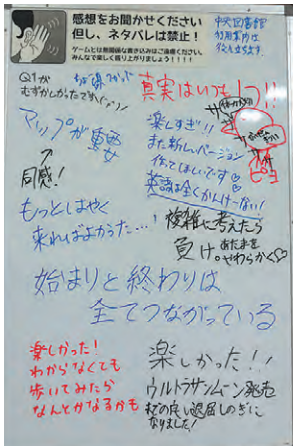 感想をお聞かせください
但し、ネタバレは禁止!
ゲームとは無関係な書き込みはご遠慮ください。
みんなで楽しく盛り上がりましょう!!!!
中央図書館
利用案内は
役に立ちます。
Q1が
むずかしかったです
真実はいつも1つ!!
マップが
同感!
楽しすぎ!!
また新しいバージョン
作ってほしいです♡
英語は全くかんけーない!
もっとはやく
来ればよかった…!
複雑に考えたら
負け。あたまを
やわらかく♡
始まりと終わりは
全てつながっている
楽しかった!
わからなくても
歩いてみたら
なんとかなるかも
楽しかった!!
ウルトラサンムーン発売
までの良い退屈しのぎに
なりました!